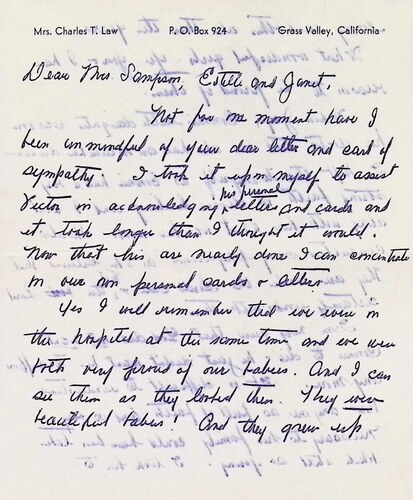 Mrs. Charles T. Law P. O. Box 924 Grass Valley, California
Dear Mrs. Sampson, Estelle and Janet,
Not for one moment have I
been unmindful of your dear letter and card of
sympathy. I took it upon myself to assist
Victor in acknowledging his personal letters and cards and
it took longer than I thought it would.
Now that his are nearly done I can concentrate
on our own personal cards & letters
Yes I well remember that we were in
the hospital at the same time and we were
both very proud of our babies. And I can
see them as they looked then. They were
beautiful babies! And they grew up